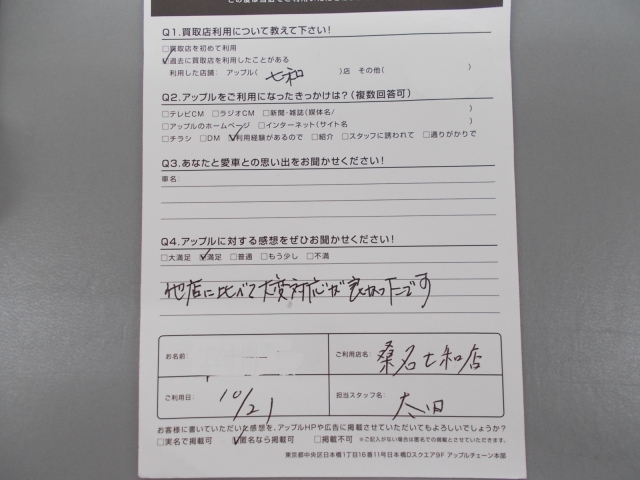 Q1.買取店利用について教えて下さい!
□買取店を初めて利用
☑過去に買取店を利用したことがある
利用した店舗: アップル( 七和 )店 その他( )
Q2.アップルをご利用になったきっかけは?(複数回答可)
□テレビCM □ラジオCM □新聞・雑誌(媒体名/ )
□アップルのホームページ □インターネット(サイト名 )
□チラシ □DM ☑利用経験があるので □紹介 □スタッフに誘われて □通りがかりで
Q3.あなたと愛車との思い出をお聞かせください!
車名:
Q4.アップルに対する感想をぜひお聞かせください!
□大満足 ☑満足 □普通 □もう少し □不満
他店に比べて大変対応が良かったです
お名前:
ご利用店名: 桑名七和店
ご利用日: 10/21
担当スタッフ名: 太田
お客様に書いていただいた感想を、アップルHPや広告に掲載させていただいてもよろしいでしょうか?
□実名で掲載可 ☑匿名なら掲載可 □掲載不可 ※ご記入がない場合は匿名での掲載とさせていただきます。
東京都中央区日本橋1丁目16番11号日本橋Dスクエア9F アップルチェーン本部